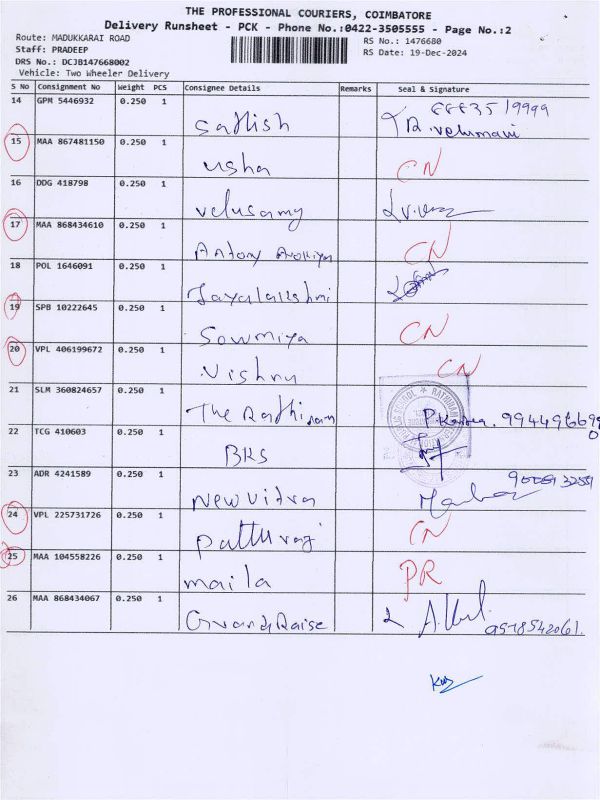 THE PROFESSIONAL COURIERS, COIMBATORE
Delivery Runsheet - PCK - Phone No.:0422-3505555 - Page No.:2
Route: MADUKKARAI ROAD RS No.: 1476680
Staff: PRADEEP RS Date: 19-Dec-2024
DRS No.: DCJB147668002
Vehicle: Two Wheeler Delivery
S No Consignment No Weight PCS Consignee Details Remarks Seal & Signature
14 GPM 5446932 0.250 1 Sathish R. Velumani
15 MAA 867481150 0.250 1 usha CN
16 DDG 418798 0.250 1 velusamy
17 MAA 868434610 0.250 1 Antony Arokiya CN
18 POL 1646091 0.250 1 Jayalakshmi
19 SPB 10222645 0.250 1 Sowmiya CN
20 VPL 406199672 0.250 1 Vishnu CN
21 SLM 360824657 0.250 1 The Rathinam
22 TCG 410603 0.250 1 BKS
23 ADR 4241589 0.250 1 New Vitra
24 VPL 225731726 0.250 1 CN
25 MAA 104558226 0.250 1 maila PR
26 MAA 868434067 0.250 1 Grand Raise 9578542061.